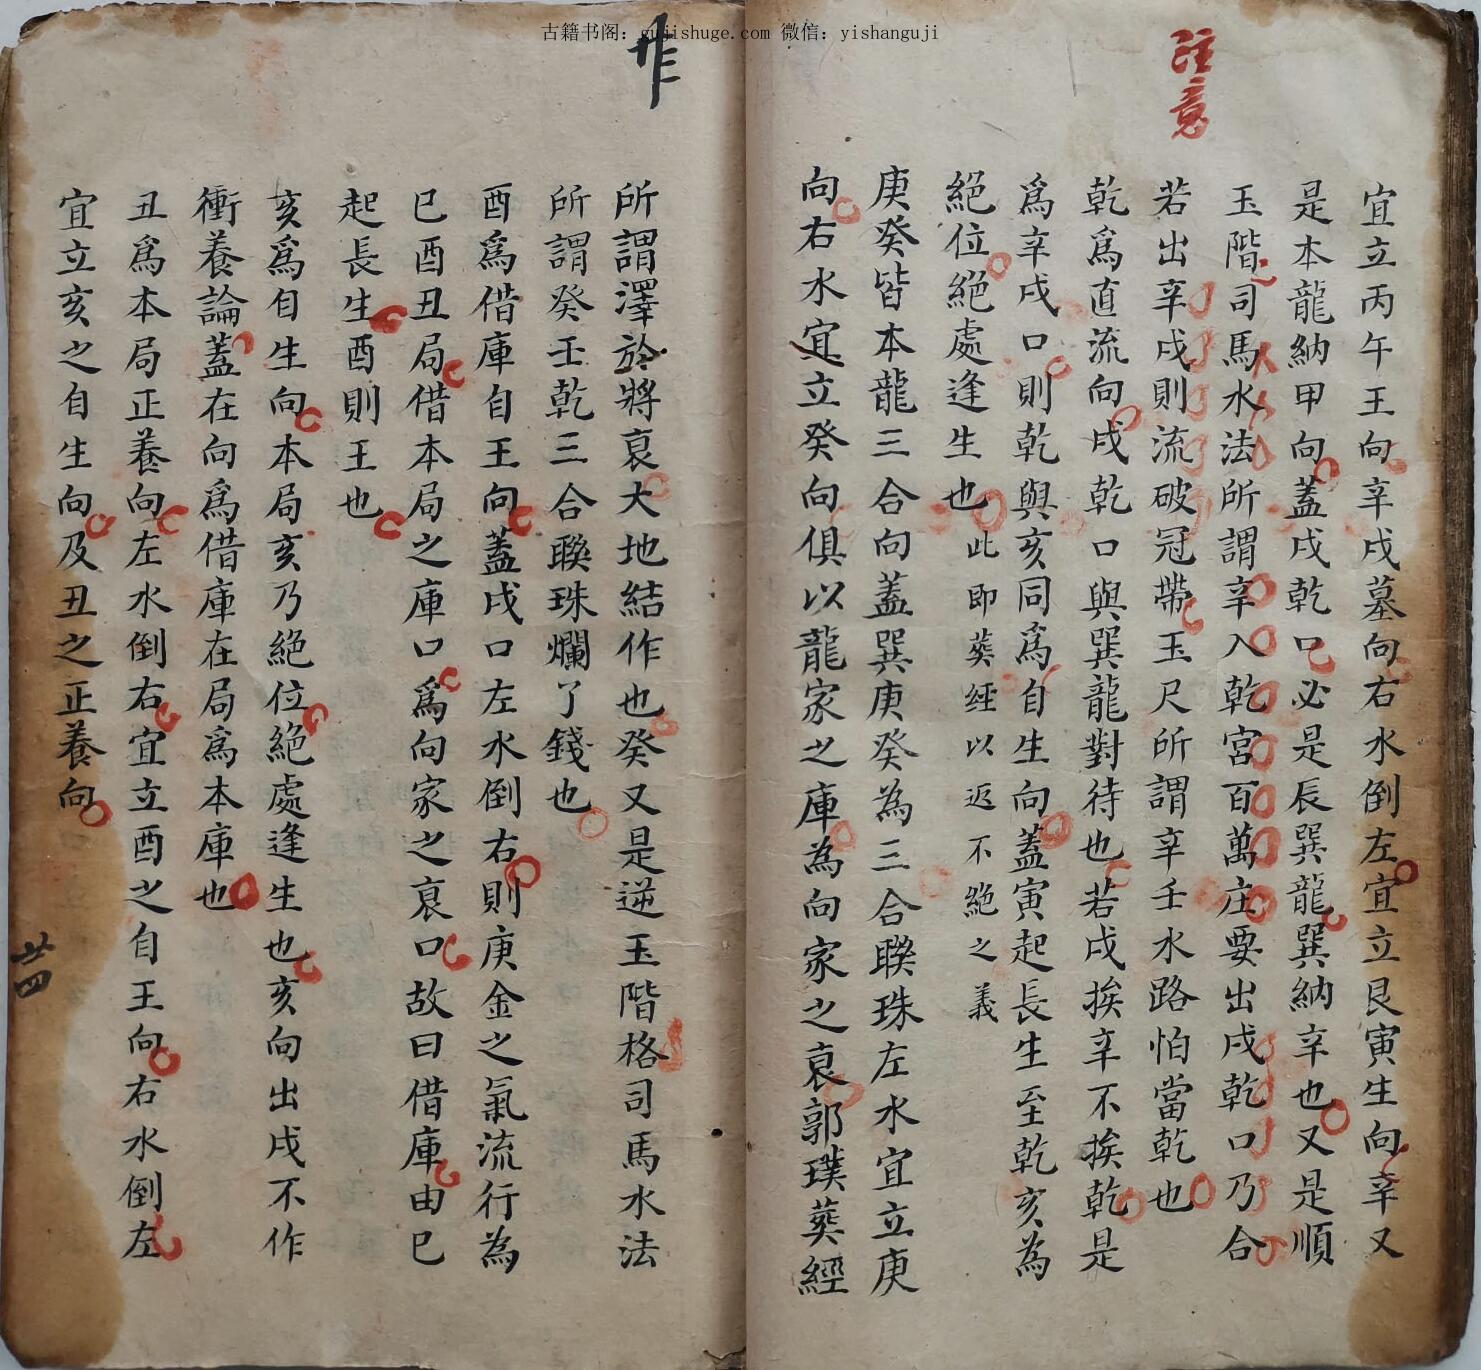 古籍书阁：gujishuge.com 微信：yishanguji
注意
宜立丙午王向辛戌墓向右水倒左宜立艮寅生向辛又
是本龍納甲向蓋戌乾口必是辰巽龍巽納辛也又是順
玉階司馬水法所謂辛入乾宮百萬庄要出戌乾口乃合
若出辛戌則流破冠帶玉尺所謂辛壬水路怕當乾也
乾爲直流向戌乾口與巽龍對待也若戌挨辛不挨乾是
爲辛戌口則乾與亥同爲自生向蓋寅起長生至乾亥為
絕位絕處逢生也此即葬經以返不絕之義
庚癸皆本龍三合向蓋巽庚癸為三合聯珠左水宜立庚
向右水宜立癸向俱以龍家之庫為向家之衰郭璞葬經
所謂澤於將衰大地結作也癸又是逆玉階格司馬水法
所謂癸壬乾三合聯珠爛了錢也
酉爲借庫自王向蓋戌口左水倒右則庚金之氣流行為
巳酉丑局借本局之庫口爲向家之衰口故曰借庫由巳
起長生酉則王也
亥爲自生向本局亥乃絕位絕處逢生也亥向出戌不作
衝養論蓋在向爲借庫在局爲本庫也
丑爲本局正養向左水倒右宜立酉之自王向右水倒左
宜立亥之自生向及丑之正養向
廿四